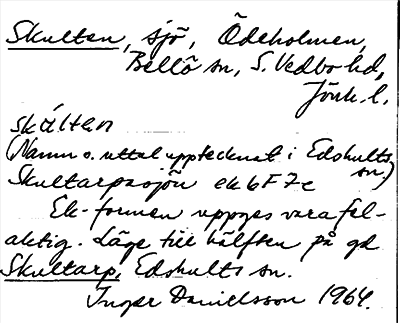 Skulten, sjö, Ödeholmen,
Bellö sn, S. Vedbo hd,
Jönk. l.
skálten
(Namn o. uttal upptecknat i Edshults
sn.)
Skultarpasjön ek 6F7c
Ek-formen uppges vara fel-
aktig. Läge till hälften på gd
Skultarp, Edshults sn.
Inger Danielsson 1964.